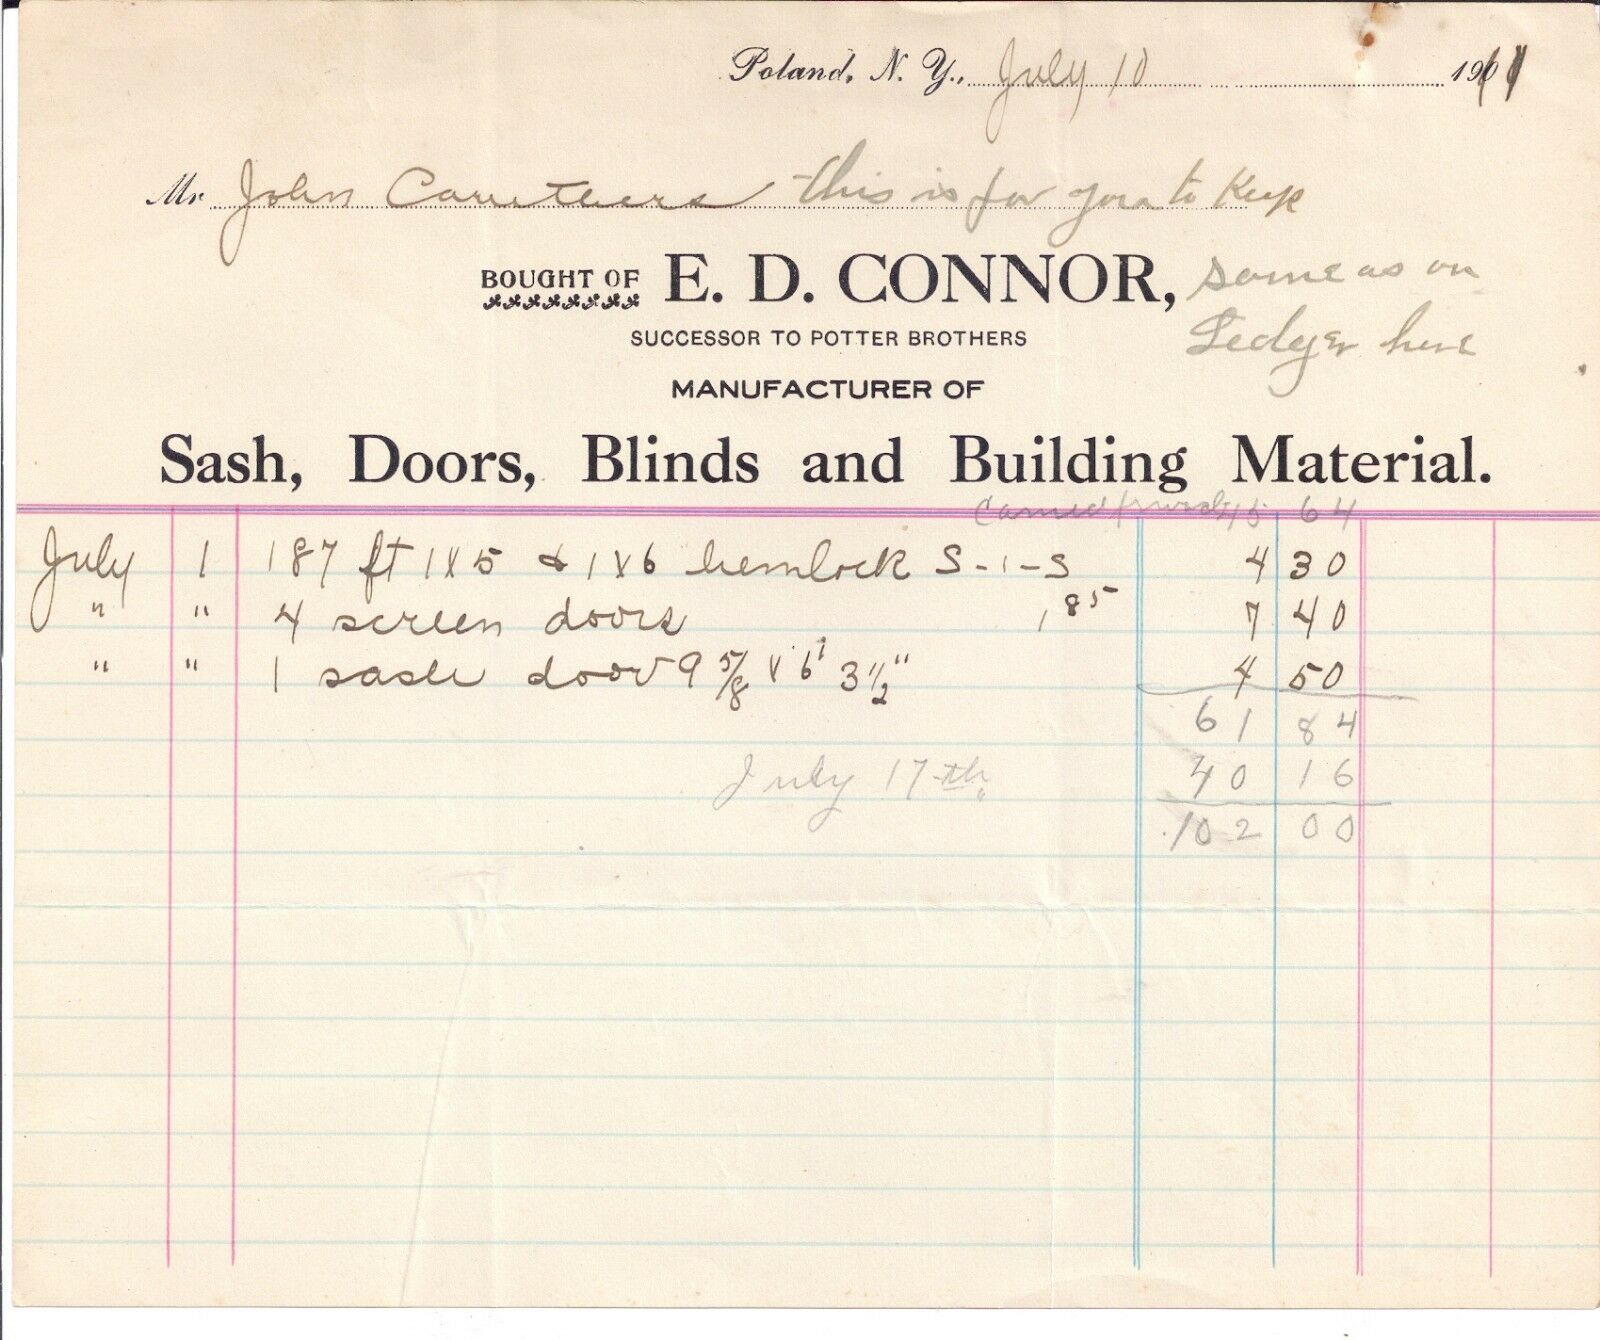 Poland, N. Y., July 10 1911
Mr John Caruthers this is for you to Keep
BOUGHT OF E. D. CONNOR, same as on
SUCCESSOR TO POTTER BROTHERS Ledger here
MANUFACTURER OF
Sash, Doors, Blinds and Building Material.
Carried forward 45 64
July 1 187 ft 1x5 & 1x6 hemlock S-1-S 4 30
" " 4 screen doors 1.85 7 40
" " 1 sash door 9 5/8 x 6' 3 1/2" 4 50
61 84
July 17th 40 16
102 00